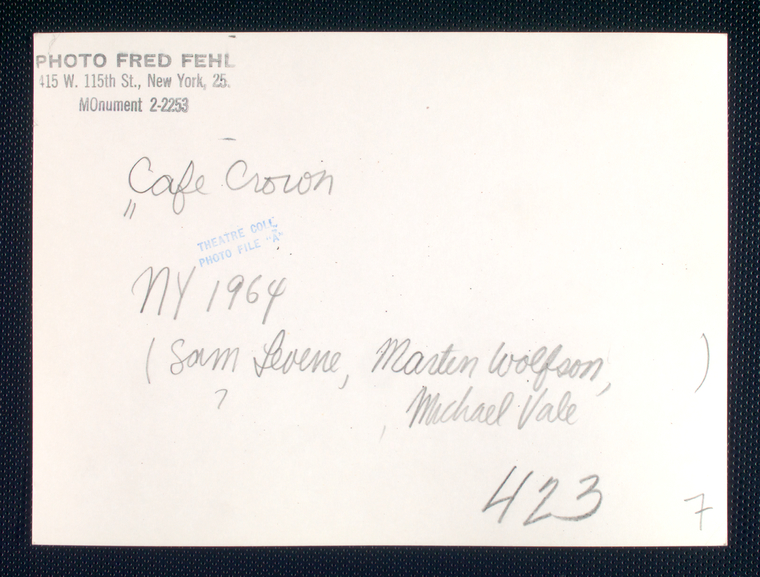 PHOTO FRED FEHL
415 W. 115th St., New York, 25.
MOnument 2-2253
Cafe Crown
"
THEATRE COLL.
PHOTO FILE "A"
NY 1964
(Sam Levene, Martin Wolfson, )
? , Michael Vale
423
7